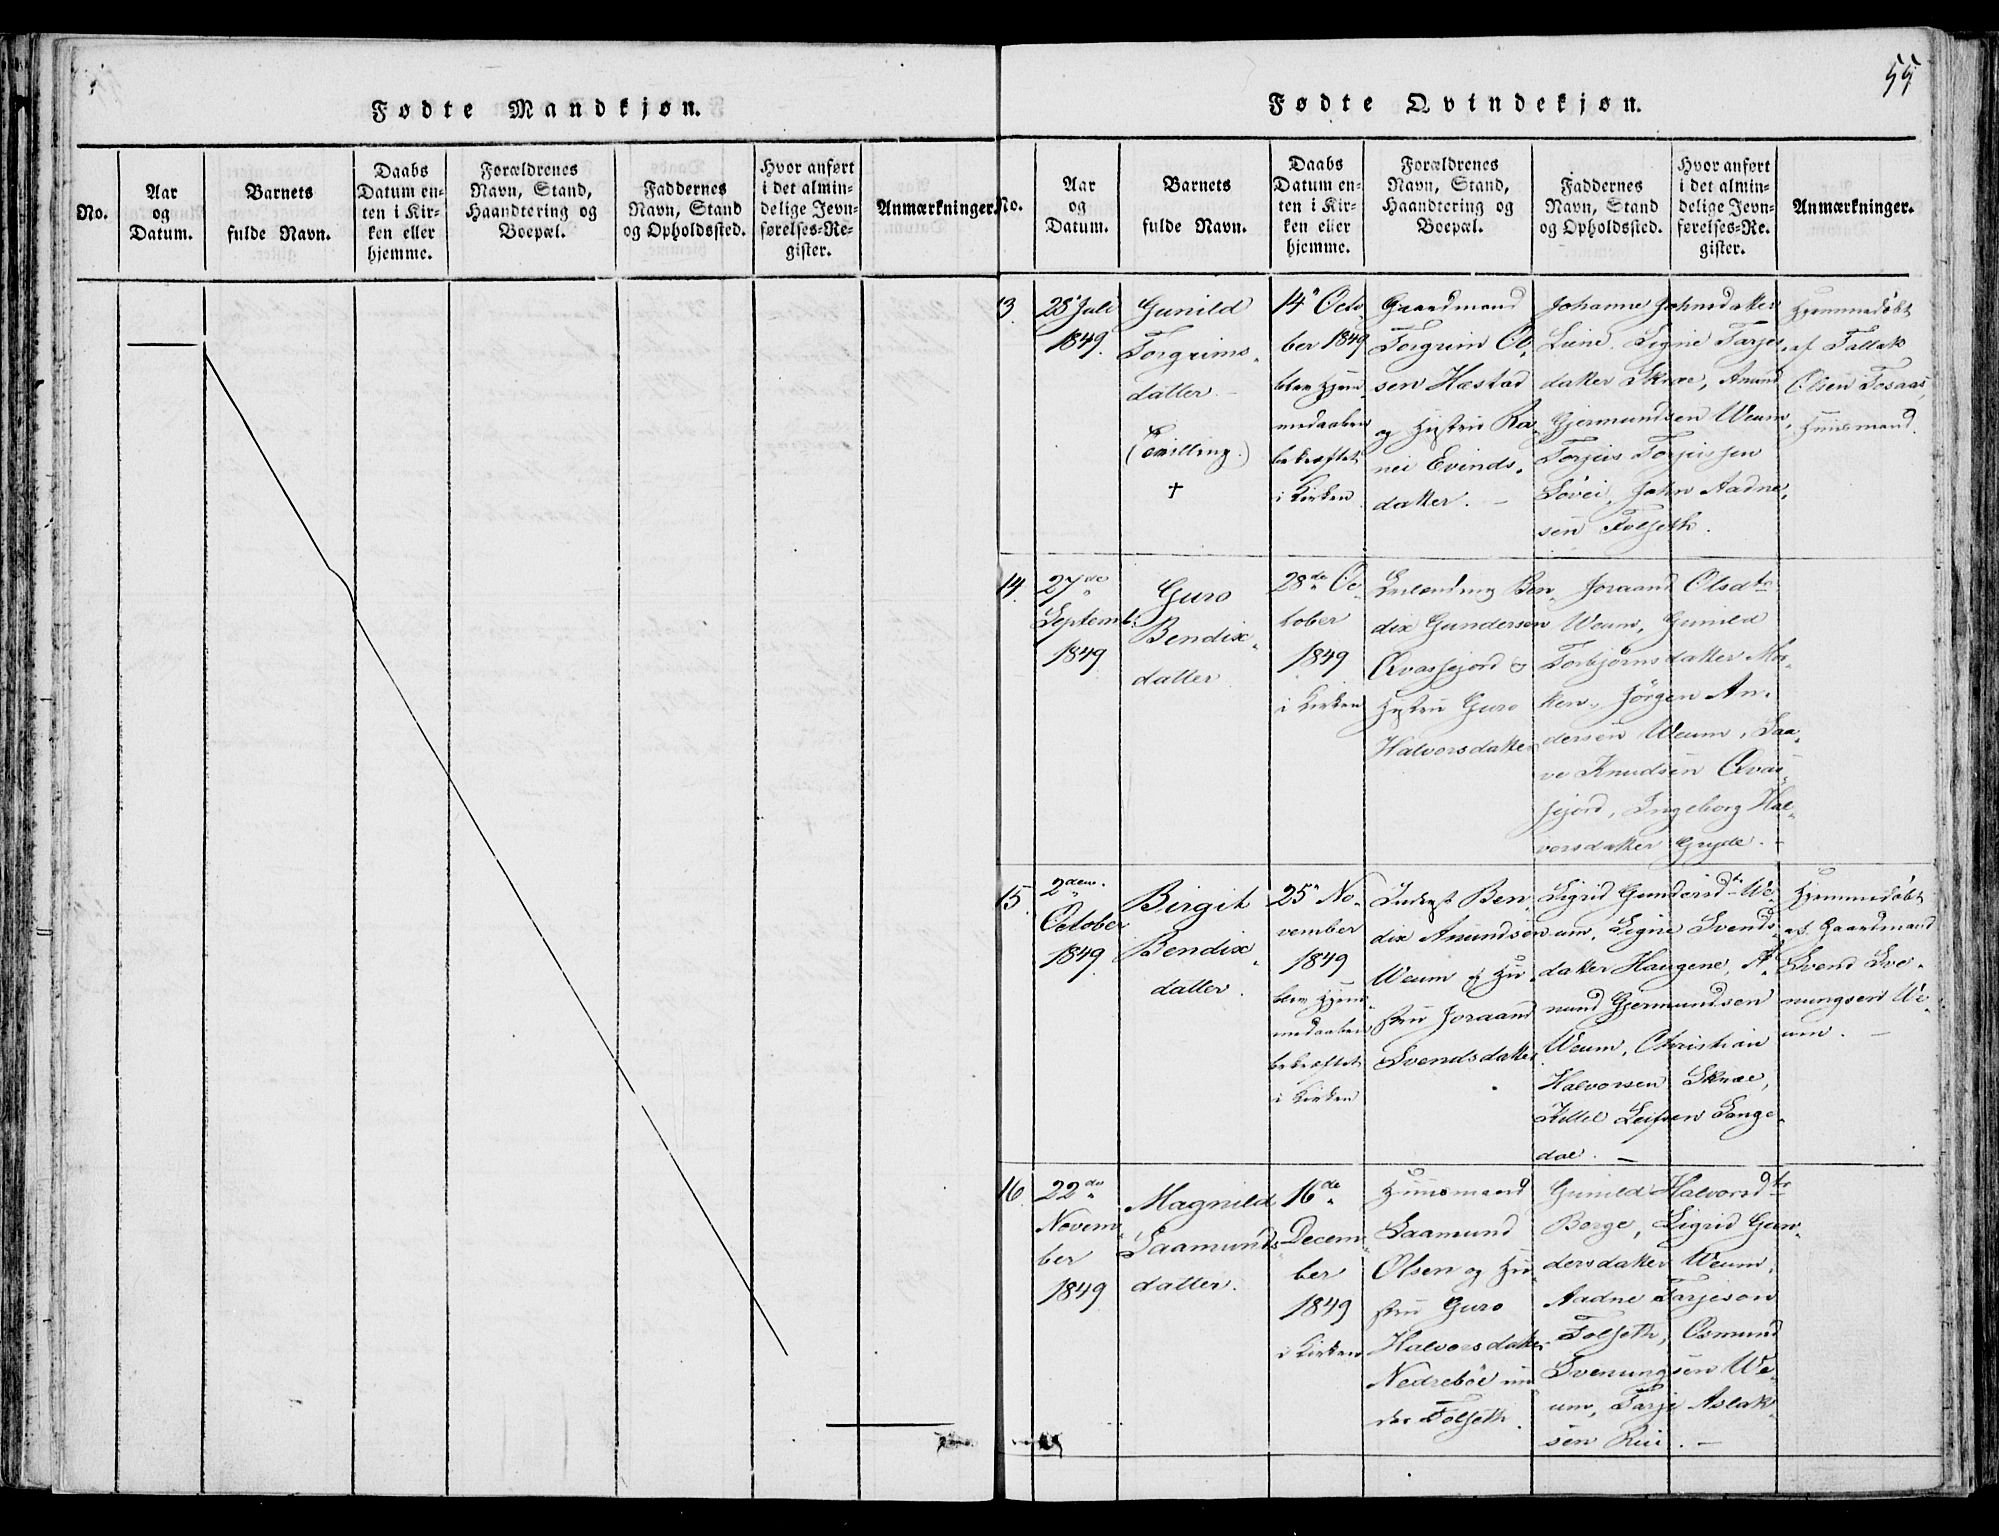 55
Fødte Mandkjøn.
No.
Aar
og
Datum.
Barnets
fulde Navn.
Daabs
Datum en-
ten i Kir-
ken eller
hjemme.
Forældrenes
Navn, Stand,
Haandtering og
Boepæl.
Faddernes
Navn, Stand
og Opholdssted.
Hvor anført
i det almin-
delige Jevn-
førelses-Re-
gister.
Anmærkninger.
Fødte Qvindekjøn.
No.
Aar
og
Datum.
Barnets
fulde Navn.
Daabs
Datum en-
ten i Kir-
ken eller
hjemme.
Forældrenes
Navn, Stand,
Haandtering og
Boepæl.
Faddernes
Navn, Stand
og Opholdssted.
Hvor anført
i det almin-
delige Jevn-
førelses-Re-
gister.
Anmærkninger.
13.
28 Juli
1849.
Gunild
Torgrims-
datter.
(Tvilling.)
†
14 Octo-
ber 1849
blev Hjem-
medaaben
bekræftet
i Kirken
Gaardmand
Torgrim Ol-
sen Hæstad
og Hustru Ra-
nei Evinds-
datter.
Johanne Johnsdatter
Liene, Signe Tarjes-
datter Skræe, Anund
Gjermundsen Weum,
Torjeis Torjeissen
Løvei, John Aadne-
sen Folseth.
Hjemmedøbt
af Tallak
Olsen Fosaas,
Huusmand.
14.
27de
Septemb.
1849
Guro
Bendix-
datter
28de Oc-
tober
1849
i Kirken
Inlending Ben-
dix Gundersen
Qvasfjord og
Hustru Guro
Halvorsdatter
Joraand Olsdtr
Weum, Gunild
Torbjørnsdatter Mo-
ken, Jørgen An-
dersen Weum, Saa-
ve Knudsen Qvas-
fjord, Ingeborg Hal-
vorsdatter Gryde.
15.
2den
October
1849.
Birgit
Bendix-
datter.
25 No-
vember
1849
blev Hjem-
medaaben
bekræftet
i Kirken
Inderst Ben-
dix Anundsen
Weum og Hu-
stru Joraand
Svendsdatter
Sigrid Gundersdtr We-
um, Signe Svends-
datter Haugene, A-
nund Gjermundsen
Weum, Christian
Halvorsen Skræe,
Kittil Leifsen Lange-
dal.
Hjemmedøbt
af Gaardmand
Svend Sve-
nungsen We-
um.
16.
22de
Novem-
ber
1849
Magnild
Saamunds-
datter.
16de
Decem-
ber
1849
i Kirken
Huusmand
Saamund
Olsen og Hu-
stru Guro
Halvorsdatter
Nedrebøe un-
der Folseth.
Gunild Halvorsdtr
Borge, Sigrid Gun-
dersdatter Weum,
Aadne Tarjeson
Folseth, Osmund
Svenungsen We-
um, Tarje Aslak-
sen Rui.